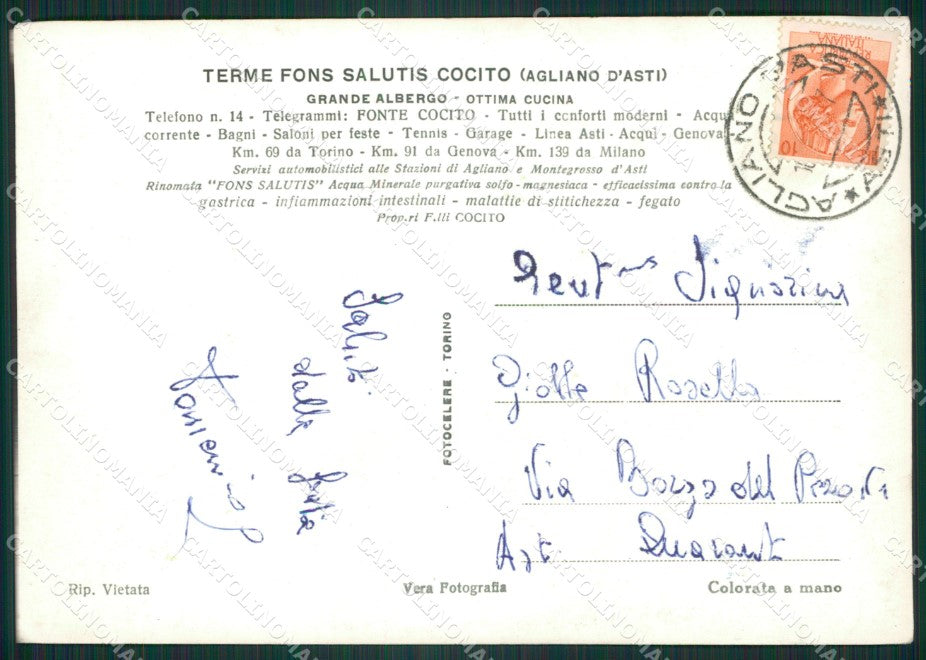 TERME FONS SALUTIS COCITO (AGLIANO D'ASTI)
GRANDE ALBERGO - OTTIMA CUCINA
Telefono n. 14 - Telegrammi: FONTE COCITO - Tutti i comforti moderni - Acqu
corrente - Bagni - Saloni per feste - Tennis - Garage - Linea Asti - Acqui - Genova
Km. 69 da Torino - Km. 91 da Genova - Km. 139 da Milano
Servizi automobilistici alle Stazioni di Agliano e Montegrosso d'Asti
Rinomata "FONS SALUTIS" Acqua Minerale purgativa solfo-magnesiaca - efficacissima contro la
gastrica - infiammazioni intestinali - malattie di stitichezza - fegato
Prop.ri F.lli COCITO
AGLIANO D'ASTI
10
Saluti
dalla
FOTOCELERE - TORINO
Gent
Rosella
Via
Rip. Vietata
Vera Fotografia
Colorata a mano
CARTOLINOMANIA